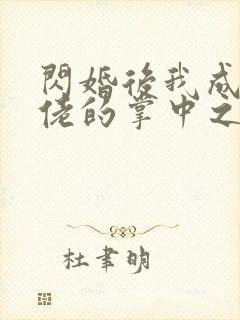 閃婚後我成
佬的掌中之
杜聿明